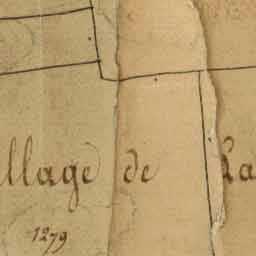 llage de La
1279